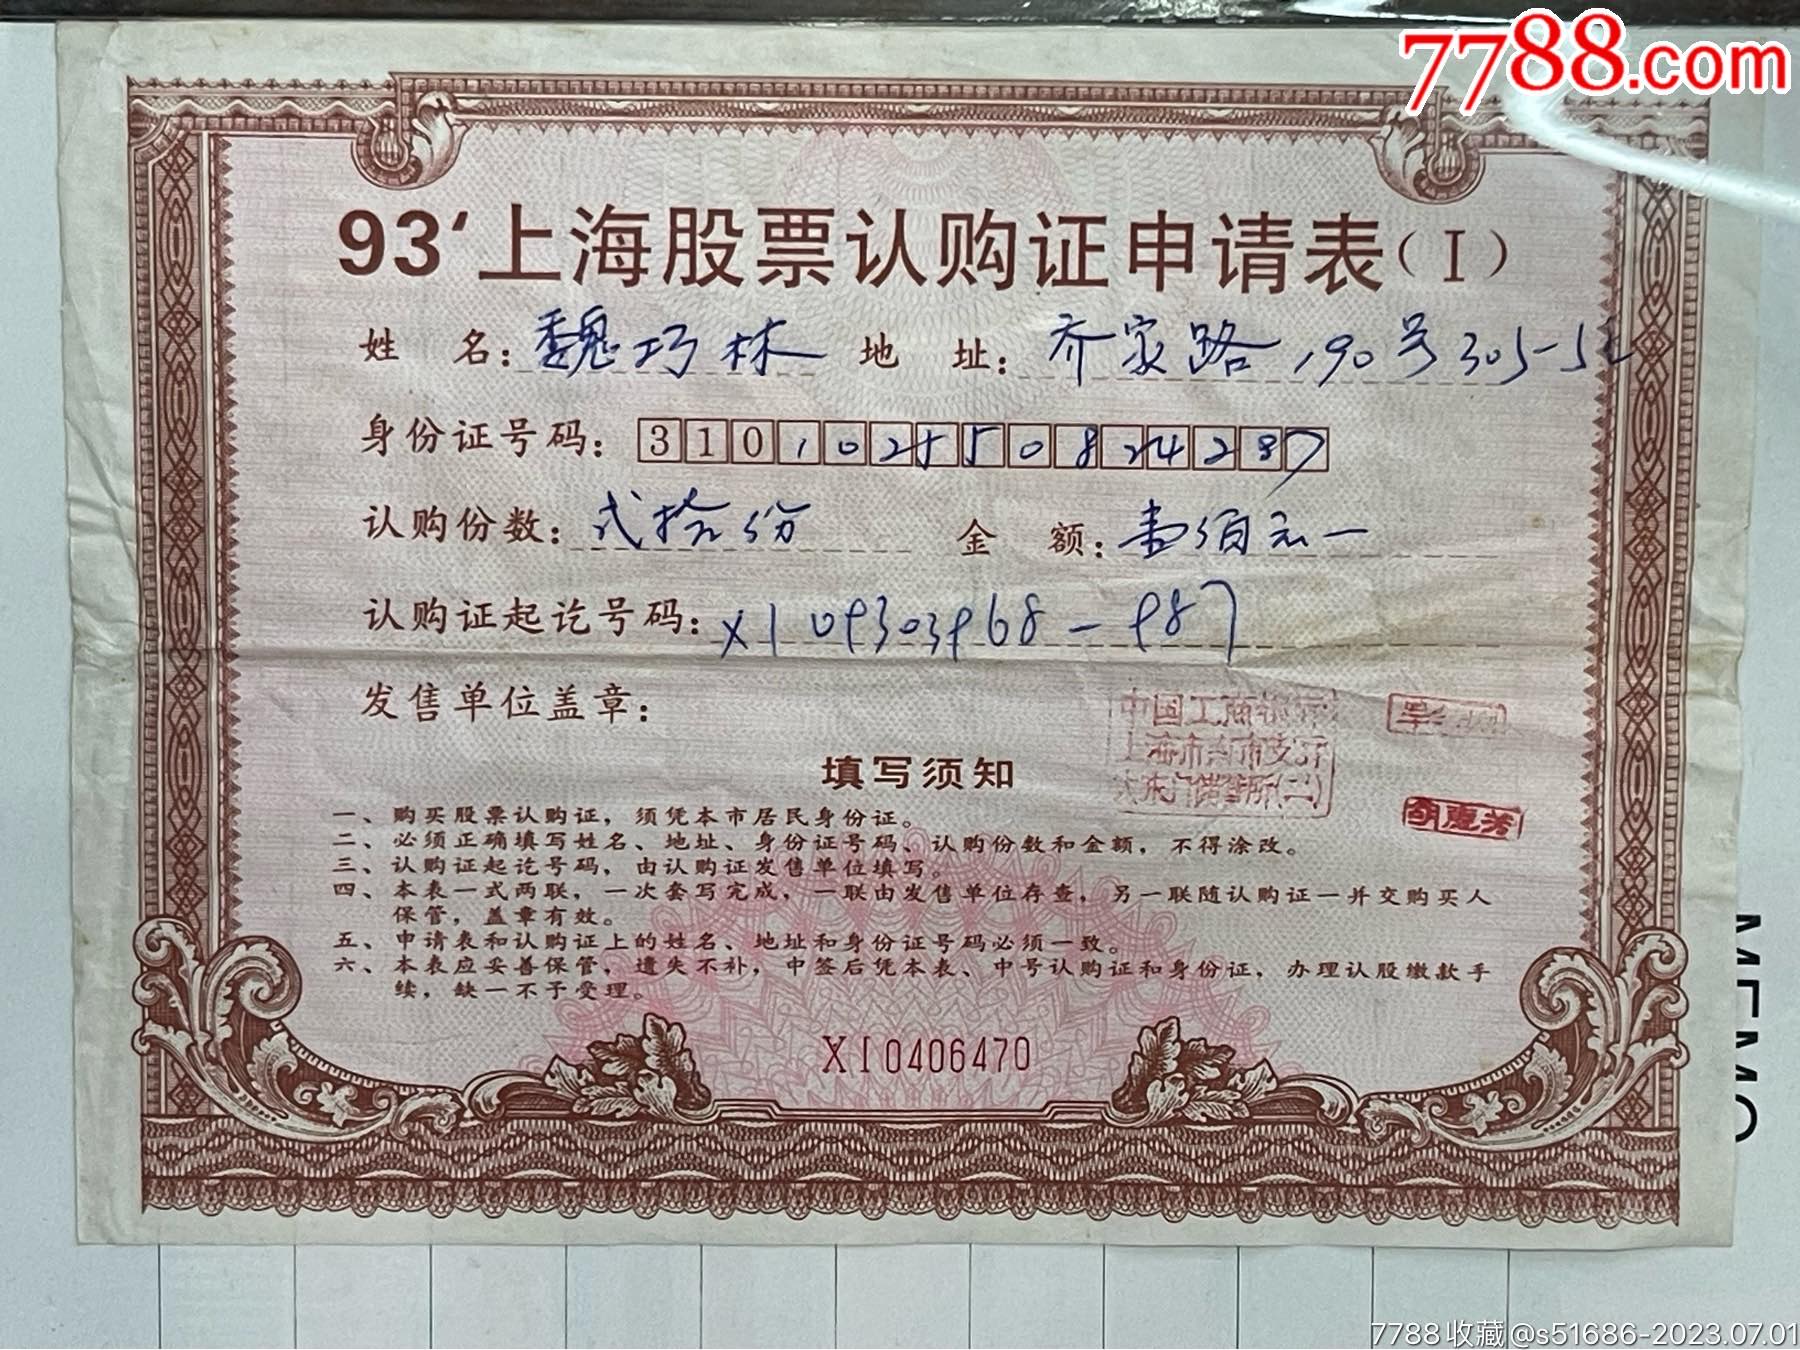 7788.com
93‘上海股票认购证申请表(I)
姓 名: 魏巧林 地 址: 乔家路190号305-5
身份证号码: 310102550824287
认购份数: 弍拾份 金 额: 壹佰元一
认购证起讫号码: XI 09303968-987
发售单位盖章:
中国工商银行
上海市南市支行
大东门储蓄所(二)
胡惠芳
填写须知
一、购买股票认购证，须凭本市居民身份证。
二、必须正确填写姓名、地址、身份证号码、认购份数和金额，不得涂改。
三、认购证起讫号码，由认购证发售单位填写。
四、本表一式两联，一次套写完成，一联由发售单位存查，另一联随认购证一并交购买人
保管，盖章有效。
五、申请表和认购证上的姓名、地址和身份证号码必须一致。
六、本表应妥善保管，遗失不补，中签后凭本表、中号认购证和身份证，办理认股缴款手
续，缺一不予受理。
XI0406470
MEMO
7788收藏@s51686-2023.07.01